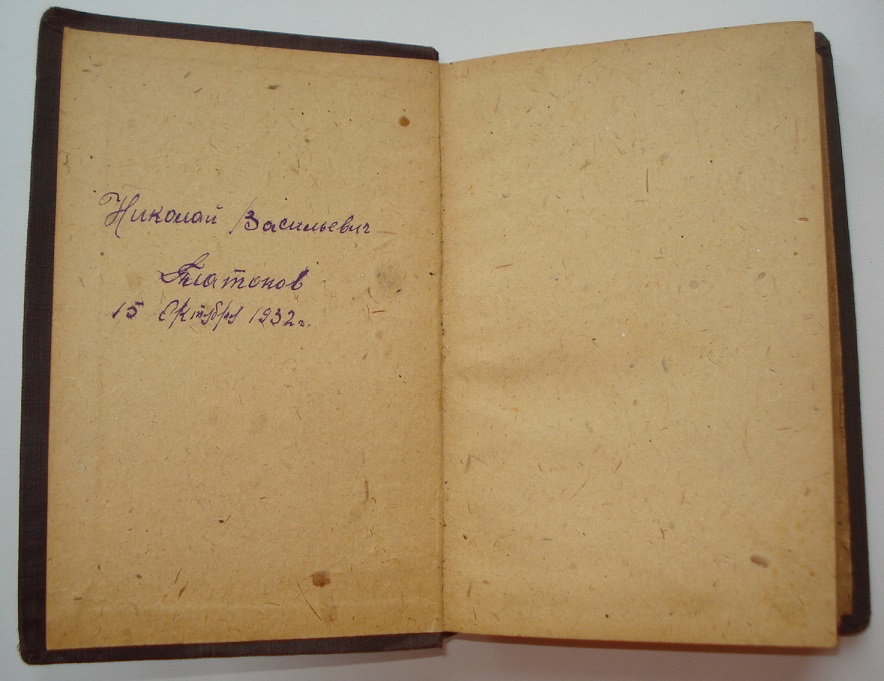 Николай Васильевич
Платонов
15 Октября 1932 г.